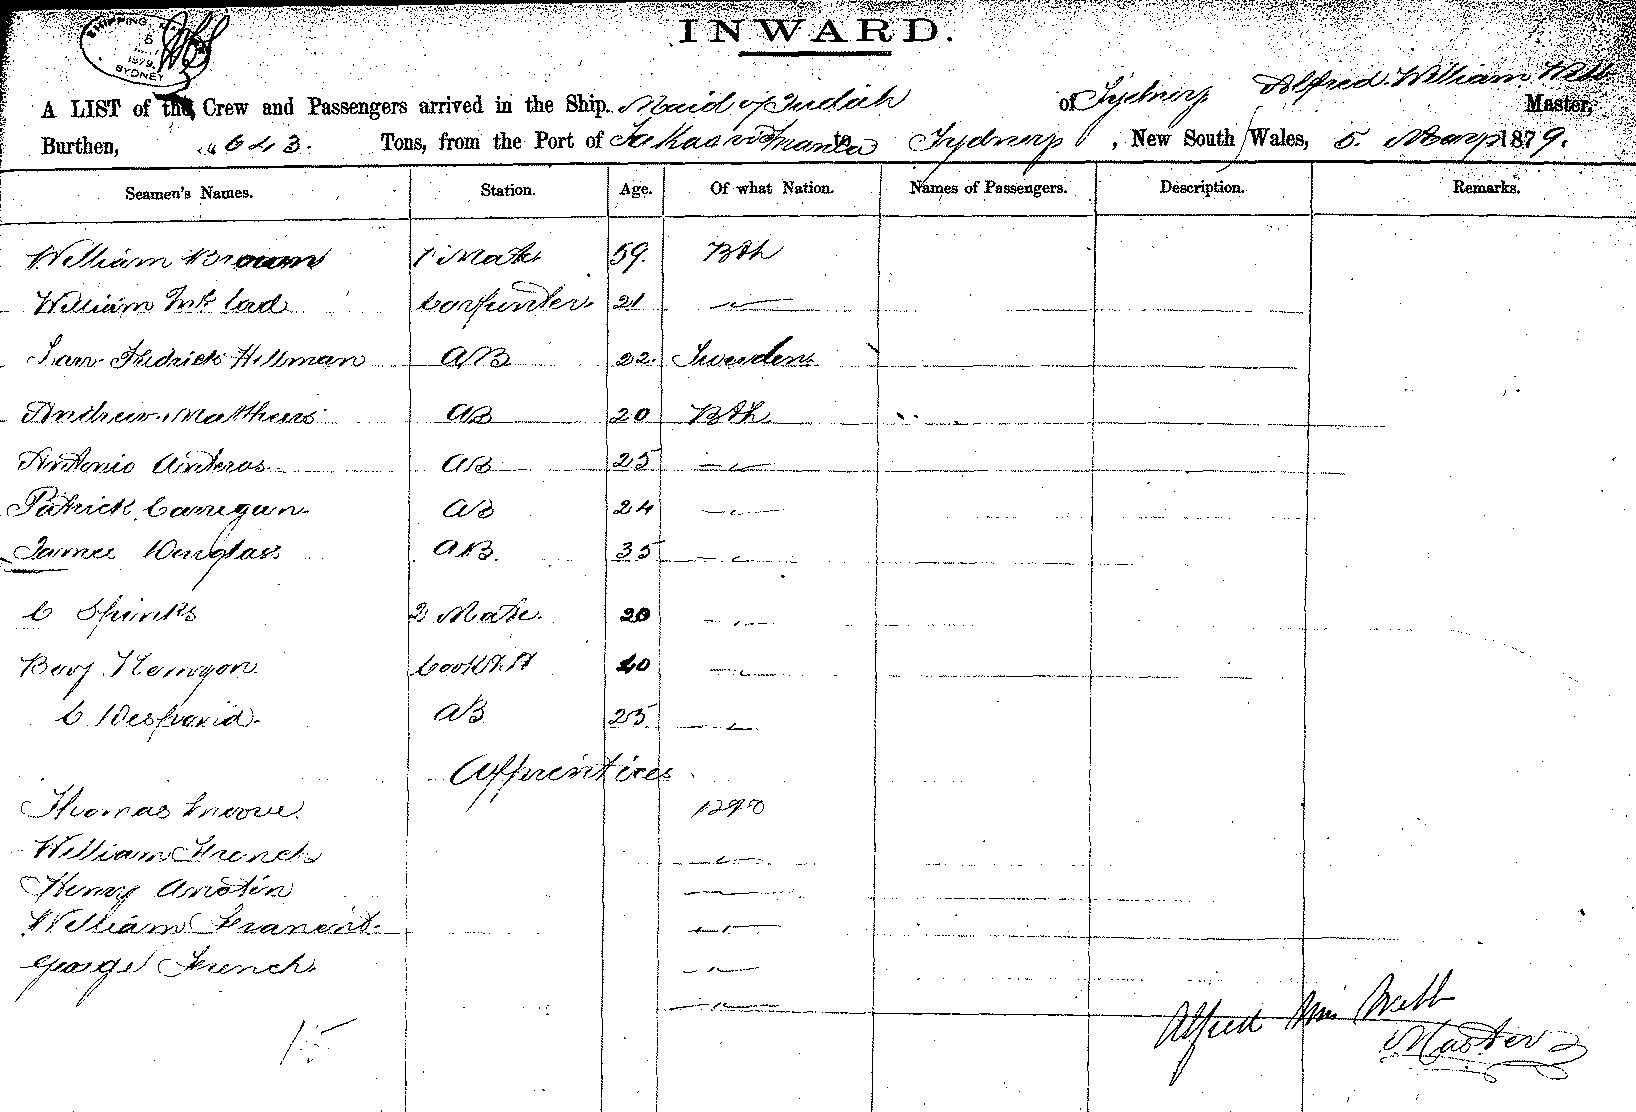 SHIPPING
5
1879
SYDNEY
INWARD.
A LIST of the Crew and Passengers arrived in the Ship Maid of Judah of Sydney Alfred William Webb Master,
Burthen, 643. Tons, from the Port of to Sydney, New South Wales, 5. May 1879.
Seamen's Names. Station. Age. Of what Nation. Names of Passengers. Description. Remarks.
William Brown 1 Mate 59. Bth
William Carpenter 21 "
Hillman AB 22. Sweden
Andrew Matthews AB 20 Bth
Antonio Anteros AB 25 "
Patrick Carrigan AB 24 "
James Douglass AB. 35 "
C Spinks 2 Mate. 20 "
40 "
C AB 25 "
Apprentices
Thomas
William French "
Henry "
William "
George French "
"
15
Alfred Wm Webb
Master